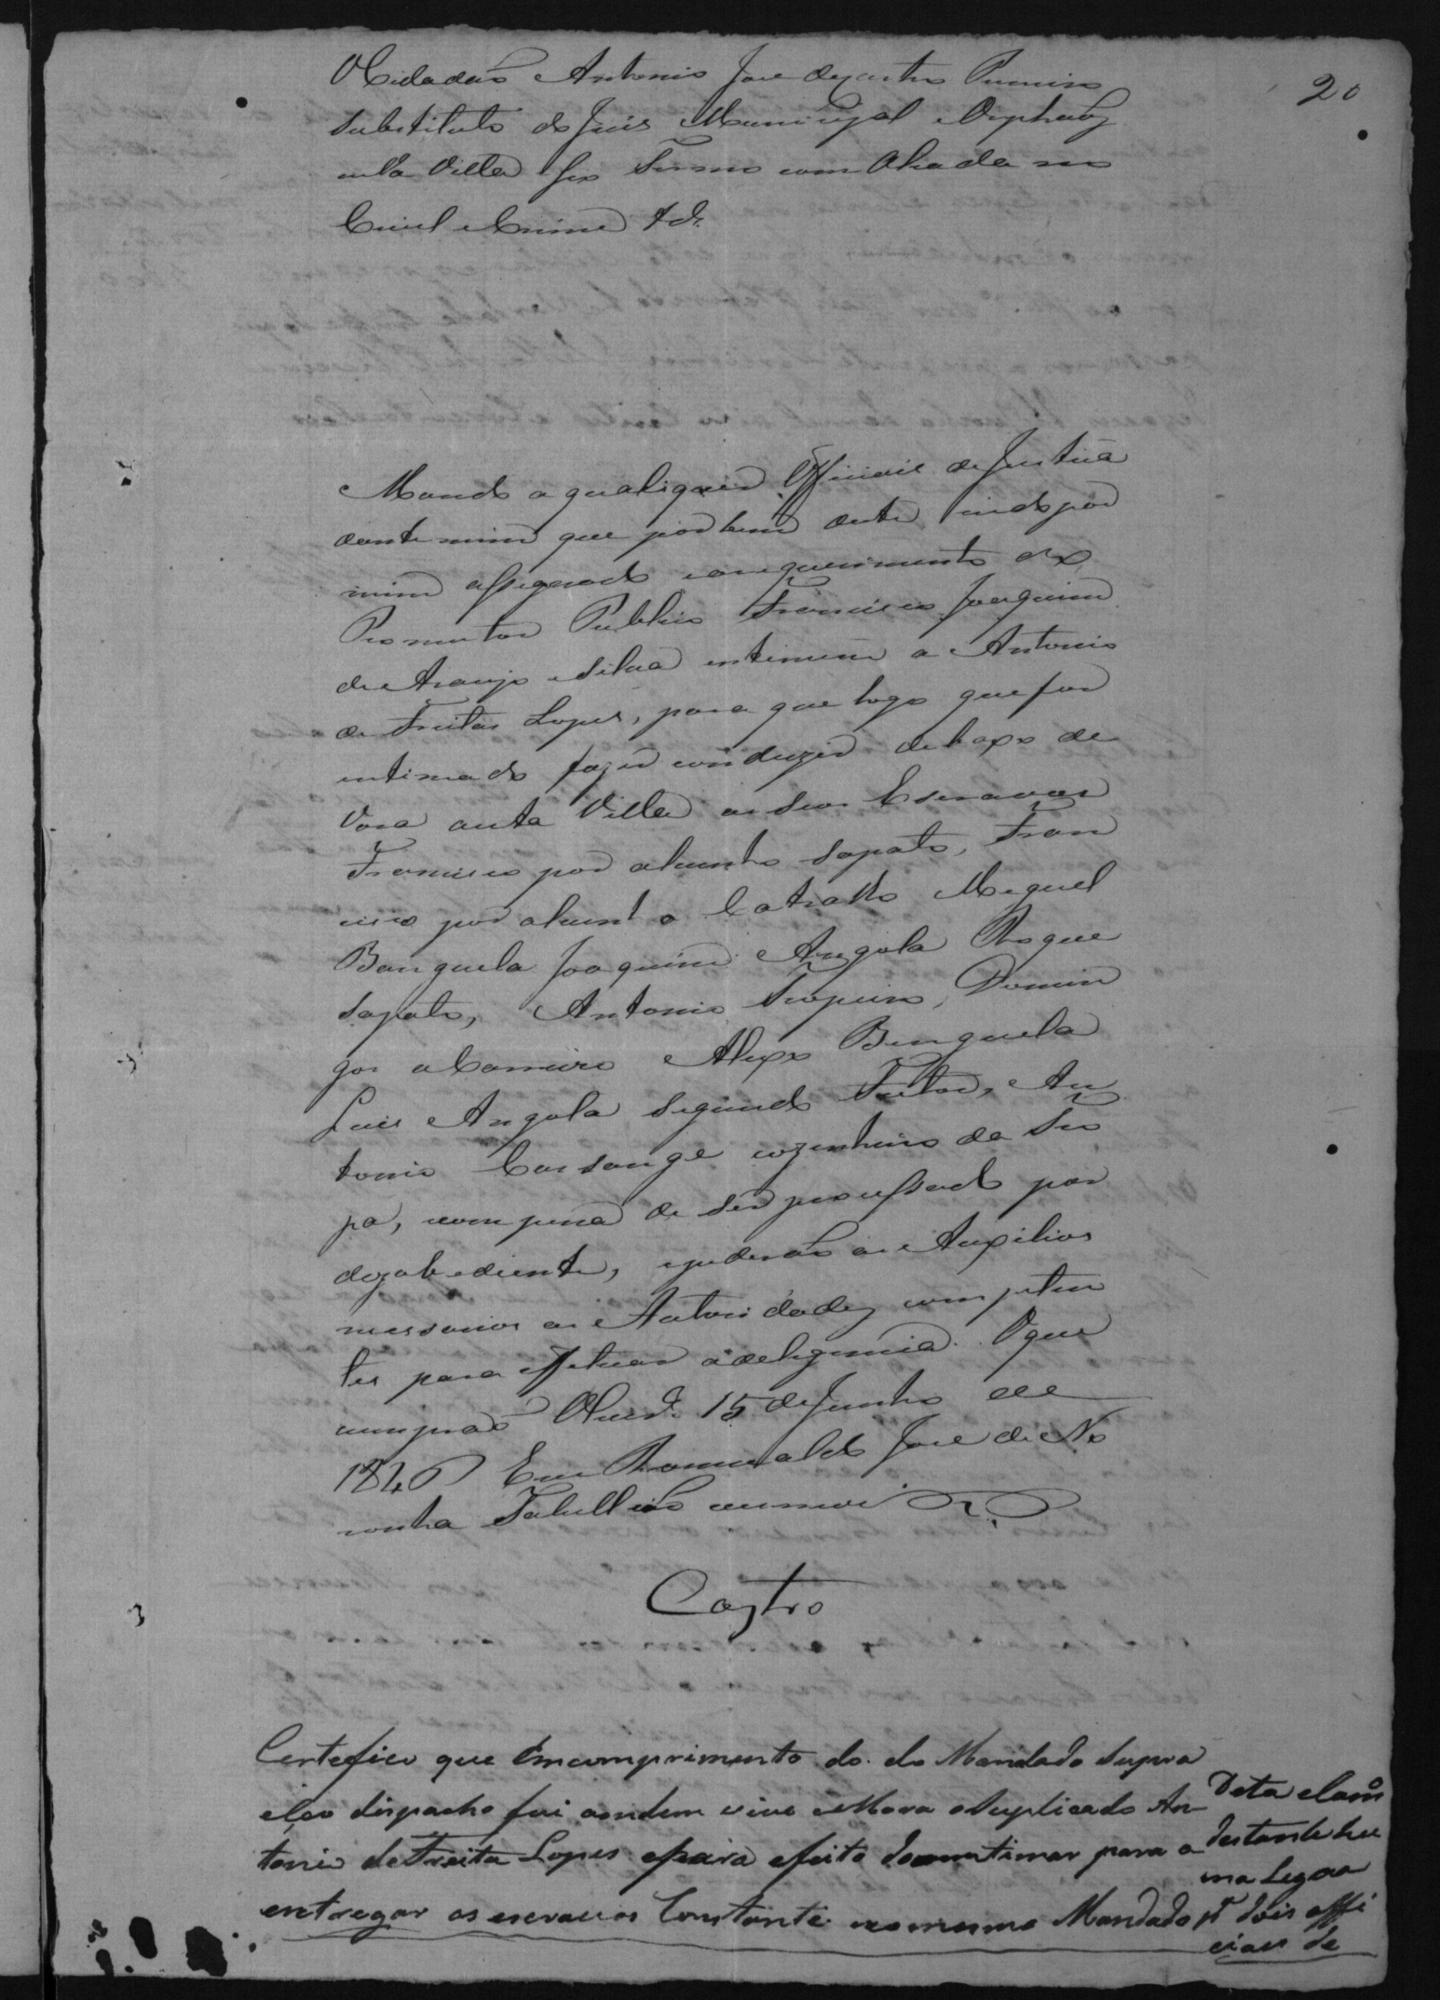 20
O Cidadão Antonio Jose de Castro Primeiro
Substituto do Juis Municipal e Orphaõs
nesta Villa e seo Termo com Alsada no
Civel e Crime &.
Mando a qualquer Officiais de Justiça
dante mim que por bem deste indo por
mim assignado e a requerimento do
Promutor Publico Francisco Joaquim
de Araujo e Silva intimem a Antonio
de Freitas Lopes, para que logo que for
intimado faser conduzir debaxo de
Vara a esta Villa os seos Escravos
Francisco por alcunha Sapato, Fran
cisco por alcunha Catrallo Miguel
Banguela Joaquim Angola Roque
Sapato, Antonio Tropeiro, Domin
gos a Carreiro Alexo Benguela
Luis Angola segundo Feitor, An
tonio Cassange cozinheiro da Tro
pa, com pena de ser processado por
dezobediente, e pederaõ os Auxilios
nessarios as Autoridades competen
tes para effetuar a deligencia. O que
cumpraõ 15 de Junho de
184 Eu Romualdo Jose de No
ronha Tabelliaõ escrevi
Castro
Certefico que Em comprimento do do Mandado Supra
e seo dispacho fui aonde vive e Mora o Suplicado An-
tonio de Freita Lopes e para efeito do intimar para a
entregar os escravos Constante no mesmo Mandado
Deta
destante hu
ma Legoa
pr dois offi
ciais de